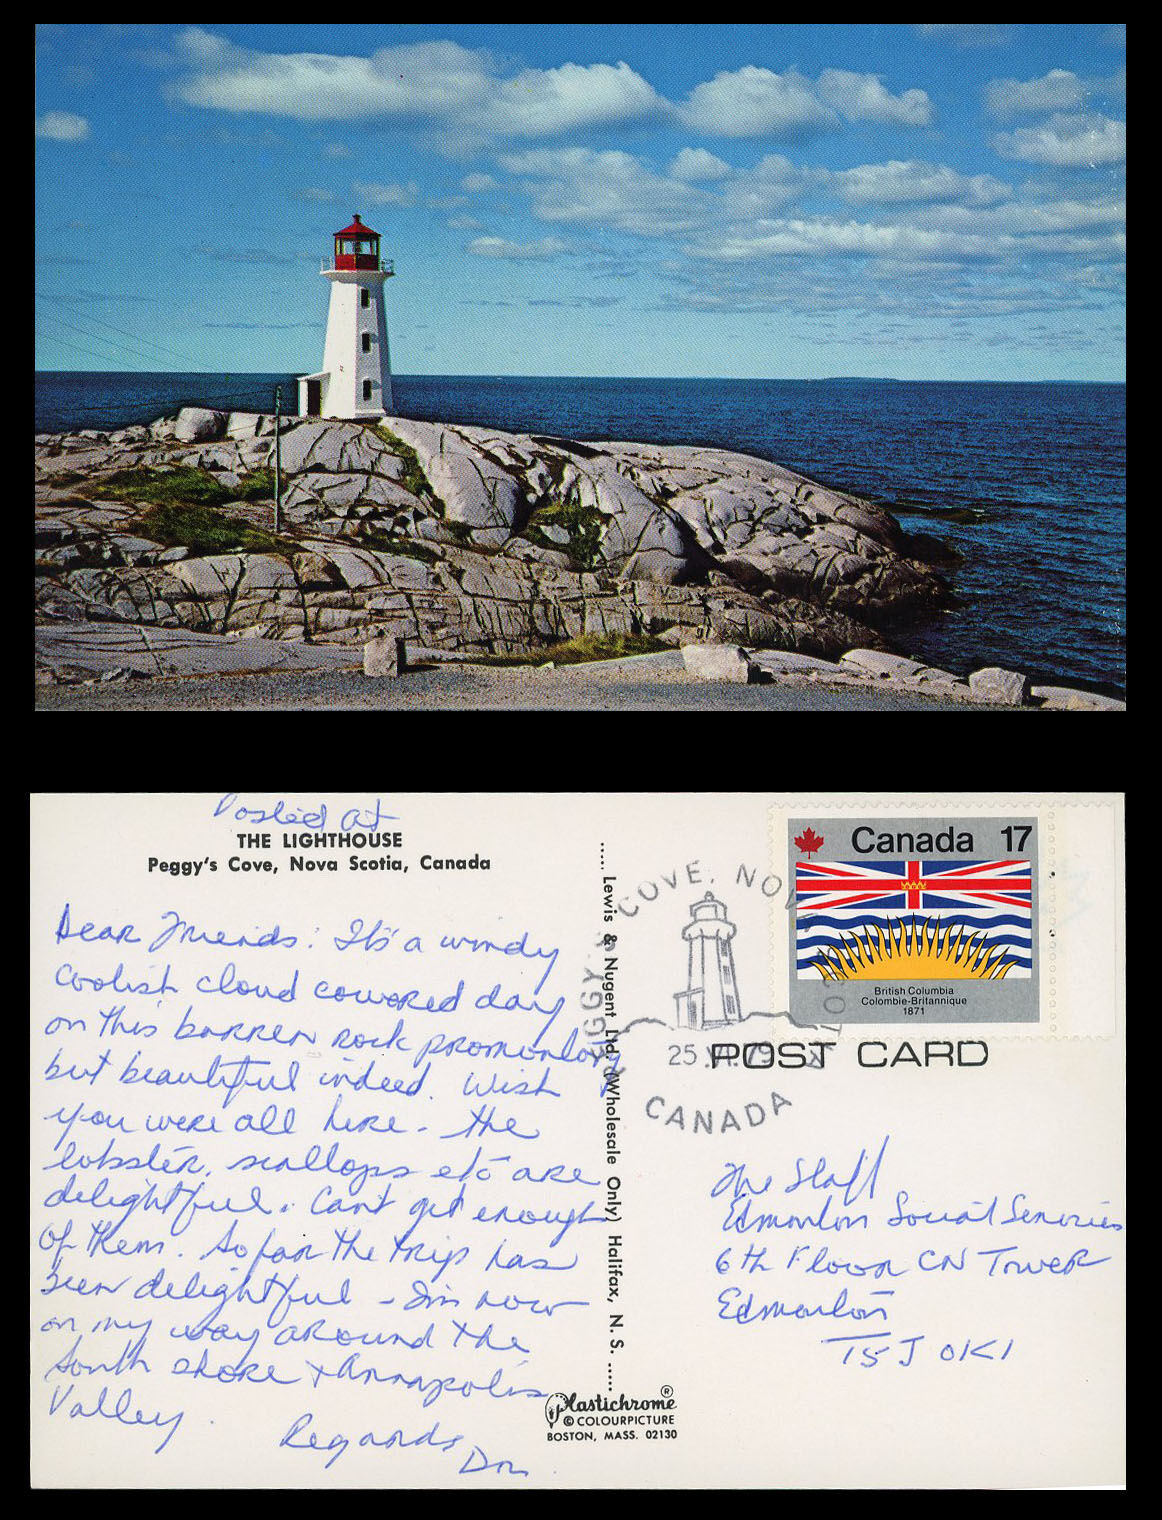 Posted at
THE LIGHTHOUSE
Peggy's Cove, Nova Scotia, Canada
Dear Friends: It's a windy
coolish cloud covered day
on this barren rock promontory
but beautiful indeed. Wish
you were all here - the
lobster, scallops etc are
delightful. Can't get enough
of them. So far the trip has
been delightful - I'm now
on my way around the
South shore + Annapolis
Valley.
Regards
Don
...... Lewis & Nugent Ltd. (Wholesale Only) Halifax, N. S. ......
Plastichrome ®
© COLOURPICTURE
BOSTON, MASS. 02130
Canada 17
British Columbia
Colombie-Britannique
1871
PEGGY'S COVE, NOVA SCOTIA
25.VI.79
CANADA
POST CARD
The Staff
Edmonton Social Services
6th Floor CN Tower
Edmonton
T5J 0K1